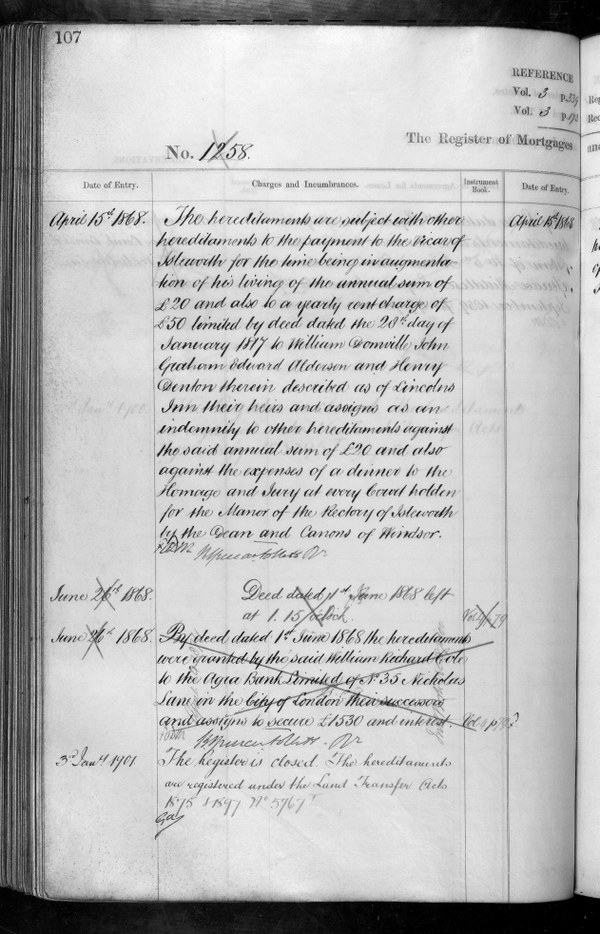 107
REFERENCE
Vol. 3 p.
Vol. 3 p.
The Register of Mortgages
No. 1258.
Date of Entry.
Charges and Incumbrances.
Instrument Book.
Date of Entry.
April 15th 1868.
April 15th 1868
The hereditaments are subject with other
hereditaments to the payment to the Vicar of
Isleworth for the time being in augmenta-
tion of his living of the annual sum of
£20 and also to a yearly rent charge of
£50 limited by deed dated the 28th day of
January 1817 to William Domville John
Graham Edward Alderson and Henry
Denton therein described as of Lincolns
Inn their heirs and assigns as an
indemnity to other hereditaments against
the said annual sum of £20 and also
against the expenses of a dinner to the
Homage and Jury at every Court holden
for the Manor of the Rectory of Isleworth
by the Dean and Canons of Windsor.
June 26th 1868.
Deed dated 1st June 1868 left
at 1.15 o'clock.
June 26th 1868.
By deed dated 1st June 1868 the hereditaments
were granted by the said William Richard Cole
to the Agra Bank Limited of No 35 Nicholas
Lane in the City of London their successors
and assigns to secure £1530 and interest.
3rd Jany 1901
The Register is closed. The hereditaments
are registered under the Land Transfer Acts
1875 & 1897 No 5767